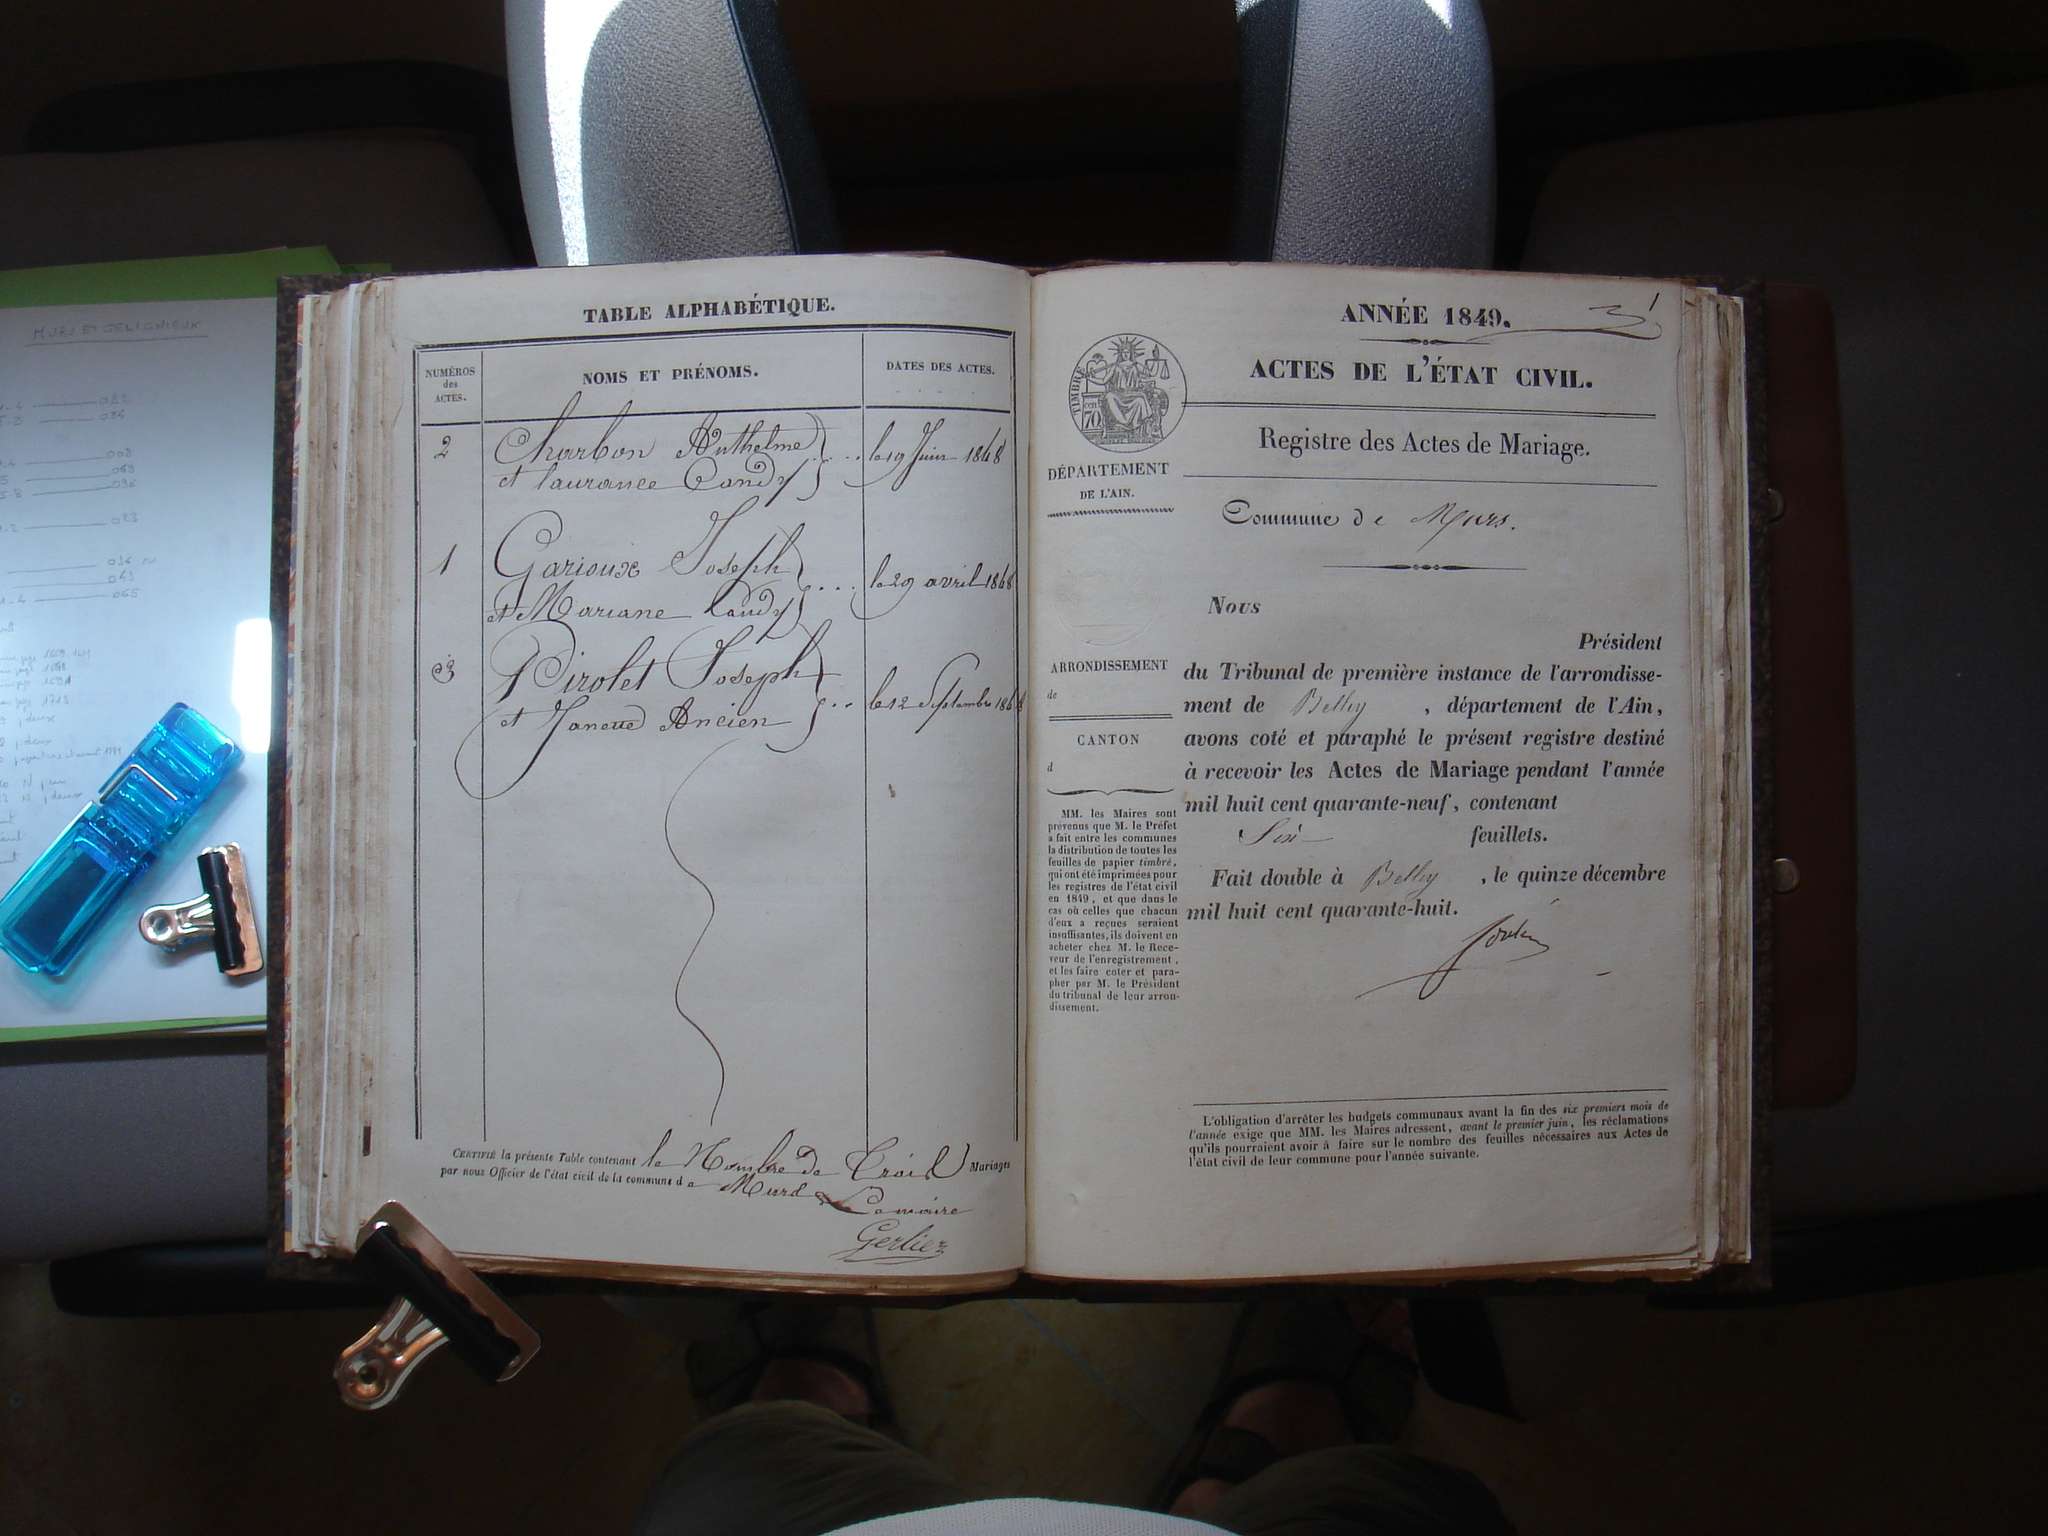 MURS ET GELIGNIEUX
TABLE ALPHABÉTIQUE.
NUMÉROS
des
ACTES.
NOMS ET PRÉNOMS.
DATES DES ACTES.
2 Charbon Anthelme le 19 Juin 1848
et laurance Candy
1 Garioux Joseph le 29 avril 1848
et Mariane Candy
3 Pirolet Joseph le 12 Septembre 1848
et Janette Ancien
CERTIFIÉ la présente Table contenant le Nombre de Trois Mariages
par nous Officier de l'état civil de la commune de Murs
Le maire
Gerlier
1
ANNÉE 1849.
ACTES DE L'ÉTAT CIVIL.
TIMBRE
70
Registre des Actes de Mariage.
DÉPARTEMENT
DE L'AIN.
Commune de Murs.
Nous
Président
du Tribunal de première instance de l'arrondisse-
ment de Belley , département de l'Ain,
avons coté et paraphé le présent registre destiné
à recevoir les Actes de Mariage pendant l'année
mil huit cent quarante-neuf, contenant
Six feuillets.
Fait double à Belley , le quinze décembre
mil huit cent quarante-huit.
ARRONDISSEMENT
de
CANTON
d
MM. les Maires sont
prévenus que M. le Préfet
a fait entre les communes
la distribution de toutes les
feuilles de papier timbré,
qui ont été imprimées pour
les registres de l'état civil
en 1849, et que dans le
cas où celles que chacun
d'eux a reçues seraient
insuffisantes, ils doivent en
acheter chez M. le Rece-
veur de l'enregistrement,
et les faire coter et para-
pher par M. le Président
du tribunal de leur arron-
dissement.
L'obligation d'arrêter les budgets communaux avant la fin des six premiers mois de
l'année exige que MM. les Maires adressent, avant le premier juin, les réclamations
qu'ils pourraient avoir à faire sur le nombre des feuilles nécessaires aux Actes de
l'état civil de leur commune pour l'année suivante.